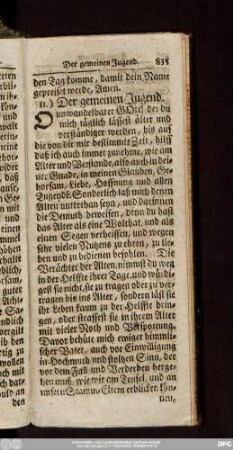 Der gemeinen Jugend. 835
den Tag komme, damit dein Name
gepreiset werde, Amen.
11.) Der gemeinen Jugend.
O unwandelbarer GOtt! der du
mich täglich lässest älter und
verständiger werden, biß auf
die von dir mir bestimmte Zeit, hilff
daß ich auch immer zunehme, wie am
Alter und Verstande, also auch in dei-
ner Gnade, in meinen Glauben, Ge-
horsam, Liebe, Hoffnung und allen
Tugenden. Sonderlich laß mich denen
Alten unterthan seyn, und darinnen
die Demuth beweisen, denn du hast
das Alter als eine Wolthat, und als
einen Segen verheissen, und wegen
sehr vielen Nutzens zu ehren, zu lie-
ben und zu bedienen befohlen. Die
Verächter der Alten, nimmst du weg
in der Helffte ihrer Tage, und würdi-
gest sie nicht, sie zu tragen oder zu ver-
tragen bis ins Alter, sondern läst sie
ihr Leben kaum zu der Helffte brin-
gen, oder straffest sie in ihrem Alter
mit vieler Noth und Verspottung.
Davor behüte mich ewiger himmli-
scher Vater, auch vor Einwilligung
in Hochmuth und stoltzen Sinn, der
vor dem Fall und Verderben herge-
hen muß, wie wir am Teufel, und an
unsern Stamm-Eltern erblicken kön-
nen,